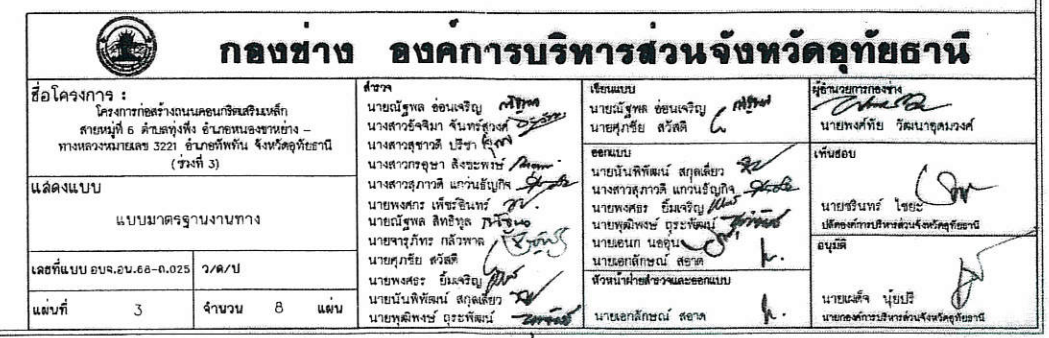 กองช่าง องค์การบริหารส่วนจังหวัดอุทัยธานี
ชื่อโครงการ :
โครงการก่อสร้างถนนคอนกรีตเสริมเหล็ก
สายหมู่ที่ 6 ตำบลทุ่งพึ่ง อำเภอหนองขาหย่าง –
ทางหลวงหมายเลข 3221 อำเภอทัพทัน จังหวัดอุทัยธานี
(ช่วงที่ 3)
แสดงแบบ
แบบมาตรฐานงานทาง
เลขที่แบบ อบจ.อน.68-ถ.025 ว/ด/ป
แผ่นที่ 3 จำนวน 8 แผ่น
สำรวจ
นายณัฐพล อ่อนเจริญ
นางสาวอัจจิมา จันทร์สุวงศ์
นางสาวสุชาวดี ปรีชา
นางสาวกรอุษา สิงชะพงษ์
นางสาวสุภาวดี แกวนธัญกิจ
นายพงศกร เพ็ชรอินทร์
นายณัฐพล สิทธิทูล
นายจารุภัทร กลัวพาล
นายศุภชัย สวัสดิ
นายพงศธร ยิ้มเจริญ
นายนันพิพัฒน์ สกุลเลี่ยว
นายพุฒิพงษ์ ถุระพัฒน์
เขียนแบบ
นายณัฐพล อ่อนเจริญ
นายศุภชัย สวัสดิ
ออกแบบ
นายนันพิพัฒน์ สกุลเลี่ยว
นางสาวสุภาวดี แกวนธัญกิจ
นายพงศธร ยิ้มเจริญ
นายพุฒิพงษ์ ถุระพัฒน์
นายเอนก นออุ่น
นายเอกลักษณ์ สอาด
หัวหน้าฝ่ายสำรวจและออกแบบ
นายเอกลักษณ์ สอาด
ผู้อำนวยการกองช่าง
นายพงศ์ทัย วัฒนาอุดมวงศ์
เห็นชอบ
นายชรินทร์ ไชยะ
ปลัดองค์การบริหารส่วนจังหวัดอุทัยธานี
อนุมัติ
นายเผด็จ นุ้ยปรี
นายกองค์การบริหารส่วนจังหวัดอุทัยธานี